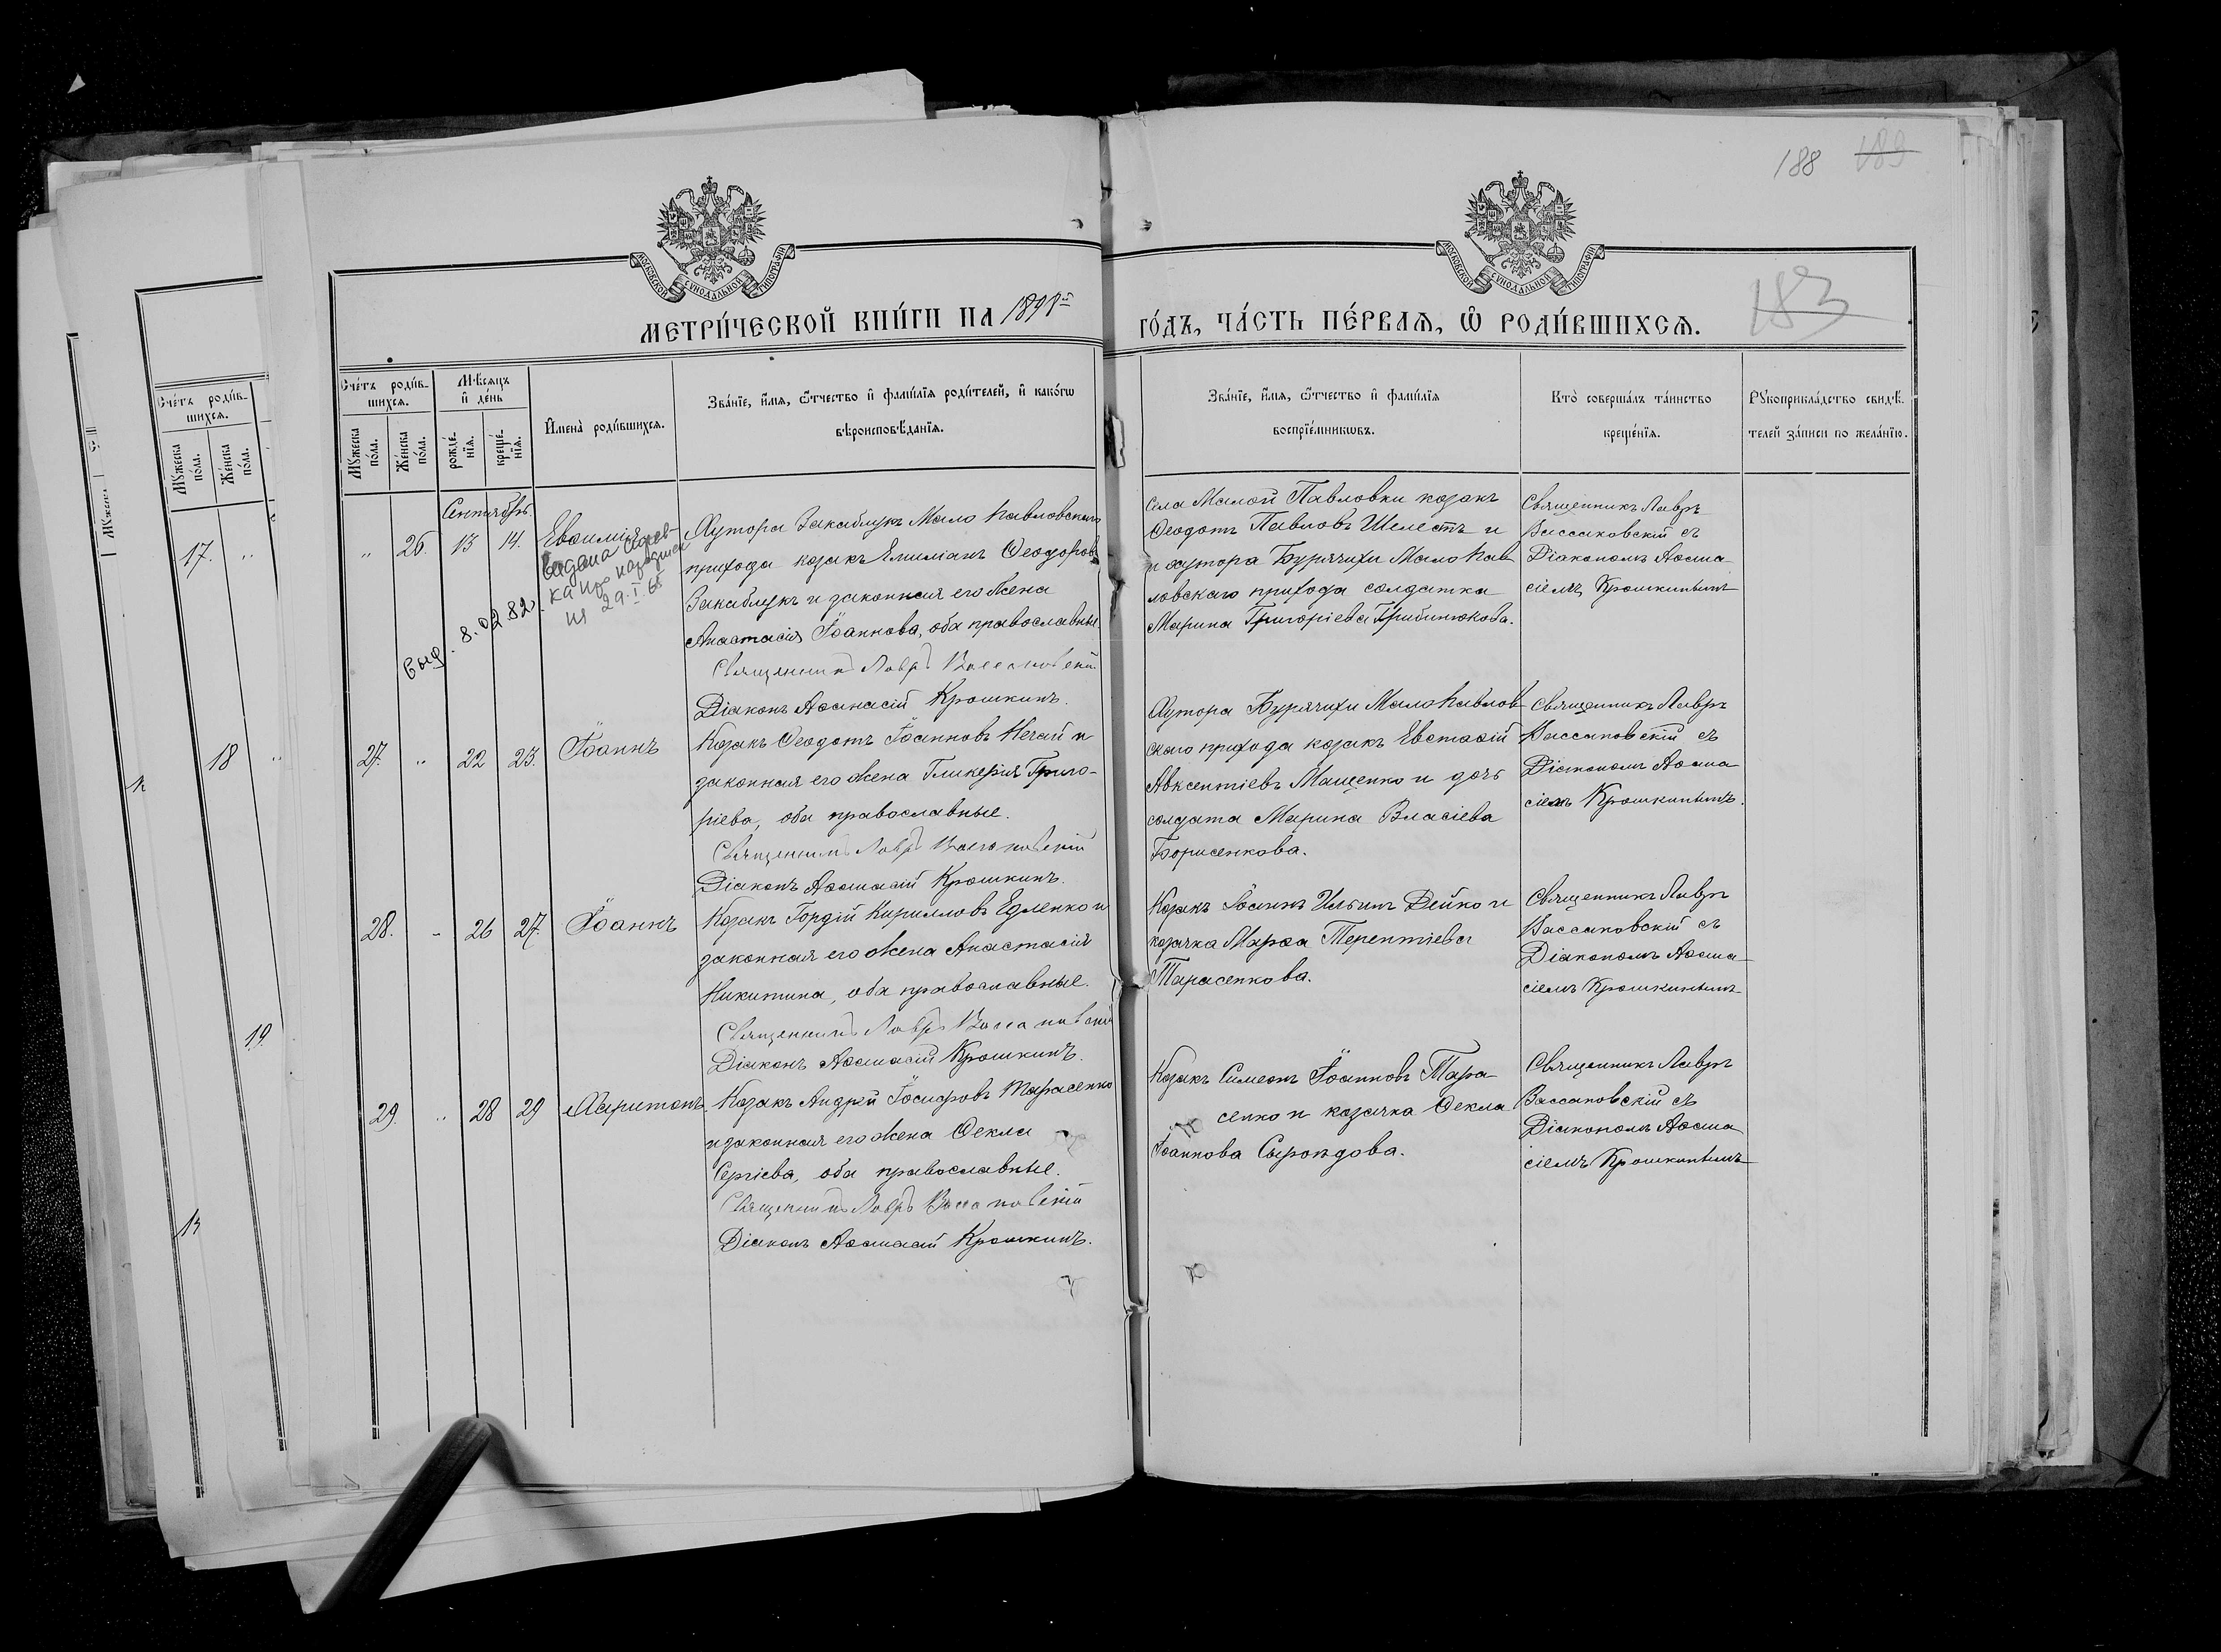 188 189
МОСКОВСКОЙ СѴНОДАЛЬНОЙ ТИПОГРАФІИ
МОСКОВСКОЙ СѴНОДАЛЬНОЙ ТИПОГРАФІИ
183
МЕТРИ́ЧЕСКОЙ КНИ́ГИ НА 1898й
ГО́ДЪ, ЧА́СТЬ ПЕ́РВАѦ, Ѡ҆ РОДИ́ВШИХСѦ.
Сче́тъ роди́в-
шихсѧ.
Мѣсѧцъ
и҆ де́нь
Мꙋ́жеска
по́ла.
Же́нска
по́ла.
рожде́-
нїѧ.
креще́-
нїѧ.
И҆мена̀ роди́вшихсѧ.
Зва́нїе, и҆́мѧ, ѻ҆́тчество и҆ фами́лїѧ роди́телей, и҆ како́гѡ
вѣроисповѣ́данїѧ.
Зва́нїе, и҆́мѧ, ѻ҆́тчество и҆ фами́лїѧ
воспрїе́мникѡвъ.
Кто̀ соверша́лъ та́инство
креще́нїѧ.
Рꙋкоприкла́дство свидѣ́-
телей за́писи по жела́нїю.
Сче́тъ роди́в-
шихсѧ.
Мꙋ́жеска
по́ла.
Же́нска
по́ла.
17. "
18 "
19.
Сентябрь
" 26. 13 14. Евѳимія
выд. 8.02.82
29.I.68
Хутора Закаблукъ Мало Павловскаго
прихода козакъ Емиліанъ Ѳеодоровъ
Закаблукъ и законная его жена
Анастасія Іоаннова, оба православные.
Священникъ Лавръ Вассаковскій
Діаконъ Аѳанасій Крошкинъ.
Села Малой Павловки козакъ
Ѳеодотъ Павловъ Шелестъ и
и хутора Бурячихи Мало Пав
ловскаго прихода солдатка
Марина Григоріева Грибинюкова.
Священникъ Лавръ
Вассаковскій съ
Діакономъ Аѳана
сіемъ Крошкинымъ
27. " 22 23. Іоаннъ
Козакъ Ѳеодотъ Іоанновъ Нечай и
законная его жена Гликерія Григо-
ріева, оба православные.
Священникъ Лавръ Вассаковскій
Діаконъ Аѳанасій Крошкинъ.
Хутора Бурячихи Мало Павлов
скаго прихода козакъ Евстаѳій
Авксентіевъ Мащенко и дочь
солдата Марина Власіева
Борисенкова.
Священникъ Лавръ
Вассаковскій съ
Діакономъ Аѳана
сіемъ Крошкинымъ.
28. - 26 27 Іоаннъ
Козакъ Гордій Кирилловъ Едленко и
законная его жена Анастасія
Никитина, оба православные.
Священникъ Лавръ Вассаковскій
Діаконъ Аѳанасій Крошкинъ.
Козакъ Іоаннъ Ильинъ Дейко и
козачка Марѳа Терентіева
Тарасенкова.
Священникъ Лавръ
Вассаковскій съ
Діакономъ Аѳана
сіемъ Крошкинымъ
29. " 28 29 Харитонъ.
Козакъ Андрей Іосифовъ Тарасенко
и законная его жена Ѳекла
Сергіева, оба православные.
Священникъ Лавръ Вассаковскій
Діаконъ Аѳанасій Крошкинъ.
Козакъ Симеонъ Іоанновъ Тара
сенко и козачка Ѳекла
Іоаннова Сыроѣдова.
Священникъ Лавръ
Вассаковскій съ
Діакономъ Аѳана
сіемъ Крошкинымъ